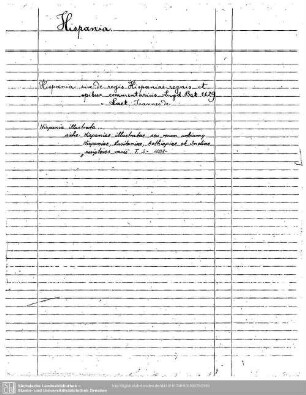 Hispania.
Hispania sive de regis Hispaniae regnis et
opibus commentarius. Lugd. Bat. 1629
Laet, Joannes de
Hispania illustrata
Hispaniae illustratae seu rerum urbiumq
Hispaniae, Lusitaniae, Aethiopiae et Indiae
scriptores varii T. 1-
Sächsische Landesbibliothek -
Staats- und Universitätsbibliothek Dresden